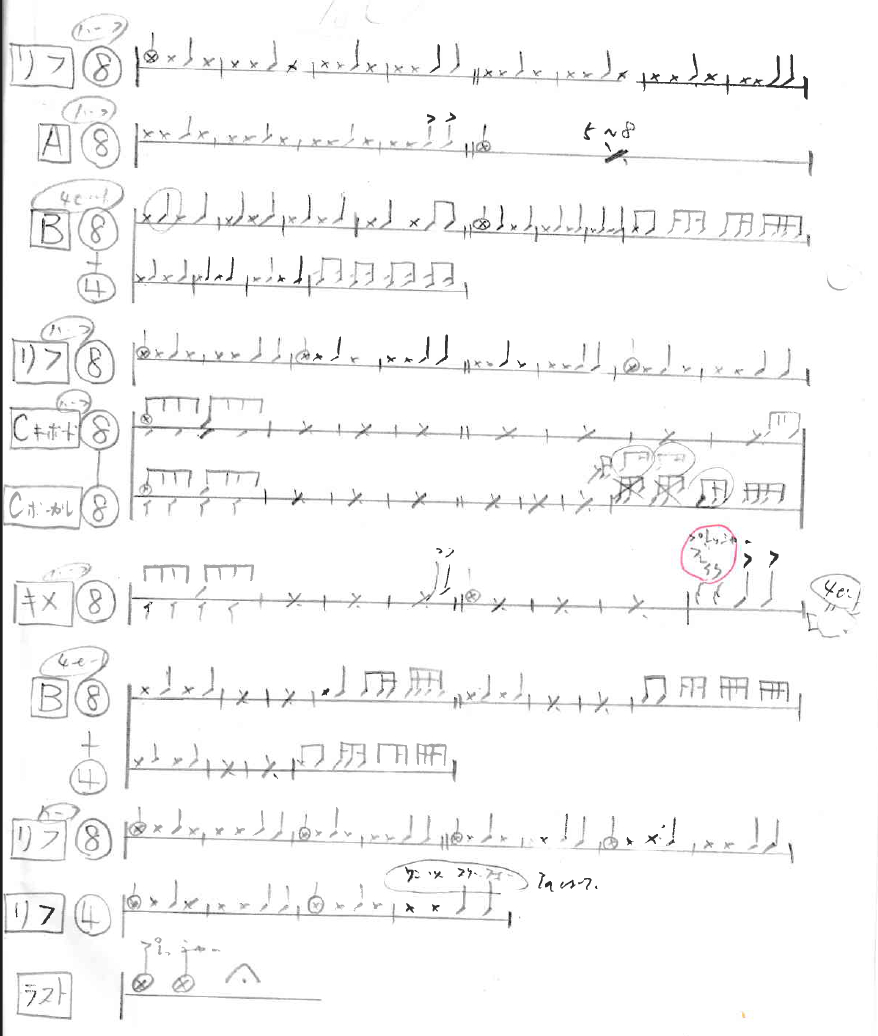 ハーフ
リフ ⑧
ハーフ
A ⑧ > >
5~8
4ビート
B ⑧
+
④
ハーフ
リフ ⑧
ハーフ
Cキーボード ⑧
Cボーカル ⑧
ハーフ
キメ ⑧ > >
4ビート
B ⑧
+
④
ハーフ
リフ ⑧
リフ ④
ラスト